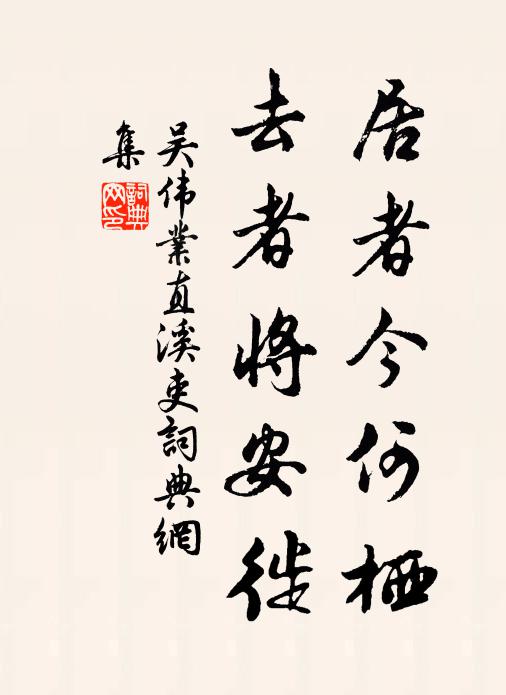 居者今何栖
去者将安徙
吴伟業直溪吏詞典網
集
詞典
网印